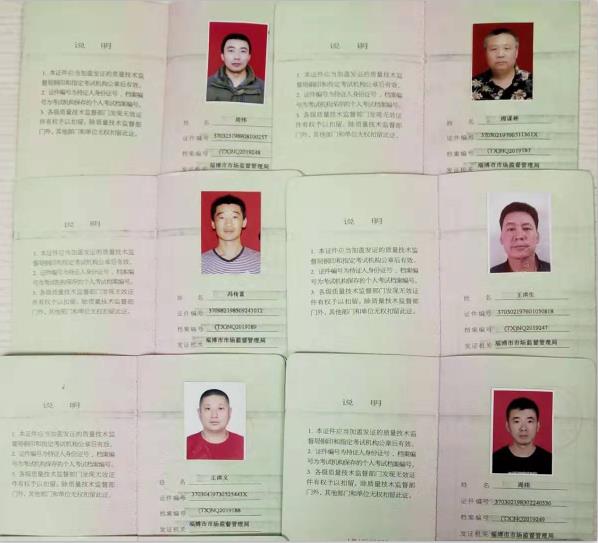 说 明
1. 本证件应当加盖发证的质量技术监
督局钢印和指定考试机构公章后有效。
2. 证件编号为持证人身份证号，档案编
号为考试机构保存的个人考试档案编号。
3. 各级质量技术监督部门发现无效证
件有权予以扣留，除质量技术监督部
门外，其他部门和单位无权扣留此证。
姓 名 周伟
证件编号
档案编号 (TX)NQ2019248
发证机关 淄博市市场监督管理局
说 明
1. 本证件应当加盖发证的质量技术监
督局钢印和指定考试机构公章后有效。
2. 证件编号为持证人身份证号，档案编
号为考试机构保存的个人考试档案编号。
3. 各级质量技术监督部门发现无效证
件有权予以扣留，除质量技术监督部
门外，其他部门和单位无权扣留此证。
姓 名
证件编号
档案编号 (TX)NQ2019187
发证机关 淄博市市场监督管理局
说 明
1. 本证件应当加盖发证的质量技术监
督局钢印和指定考试机构公章后有效。
2. 证件编号为持证人身份证号，档案编
号为考试机构保存的个人考试档案编号。
3. 各级质量技术监督部门发现无效证
件有权予以扣留，除质量技术监督部
门外，其他部门和单位无权扣留此证。
姓 名
证件编号 370982198509241012
档案编号 (TX)NQ2019189
发证机关 淄博市市场监督管理局
说 明
1. 本证件应当加盖发证的质量技术监
督局钢印和指定考试机构公章后有效。
2. 证件编号为持证人身份证号，档案编
号为考试机构保存的个人考试档案编号。
3. 各级质量技术监督部门发现无效证
件有权予以扣留，除质量技术监督部
门外，其他部门和单位无权扣留此证。
姓 名 王洪生
证件编号 370302197601050818
档案编号 (TX)NQ2019247
发证机关 淄博市市场监督管理局
说 明
1. 本证件应当加盖发证的质量技术监
督局钢印和指定考试机构公章后有效。
2. 证件编号为持证人身份证号，档案编
号为考试机构保存的个人考试档案编号。
3. 各级质量技术监督部门发现无效证
件有权予以扣留，除质量技术监督部
门外，其他部门和单位无权扣留此证。
姓 名 王洪义
证件编号
档案编号 (TX)NQ2019188
发证机关 淄博市市场监督管理局
说 明
1. 本证件应当加盖发证的质量技术监
督局钢印和指定考试机构公章后有效。
2. 证件编号为持证人身份证号，档案编
号为考试机构保存的个人考试档案编号。
3. 各级质量技术监督部门发现无效证
件有权予以扣留，除质量技术监督部
门外，其他部门和单位无权扣留此证。
姓 名 周炜
证件编号
档案编号 (TX)NQ2019249
发证机关 淄博市市场监督管理局